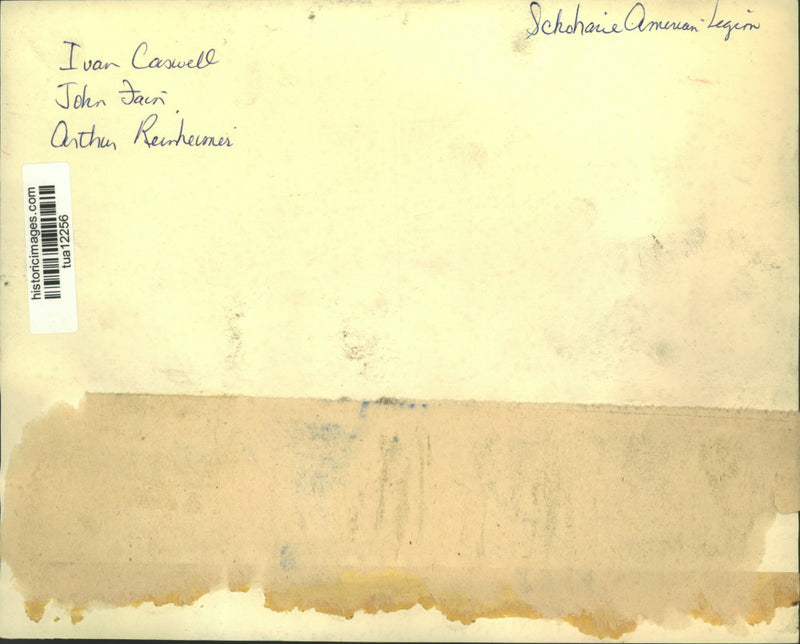 Schoharie American Legion
Ivan Caswell
John Fairi
Arthur Reinheimer
historicimages.com
tua12256